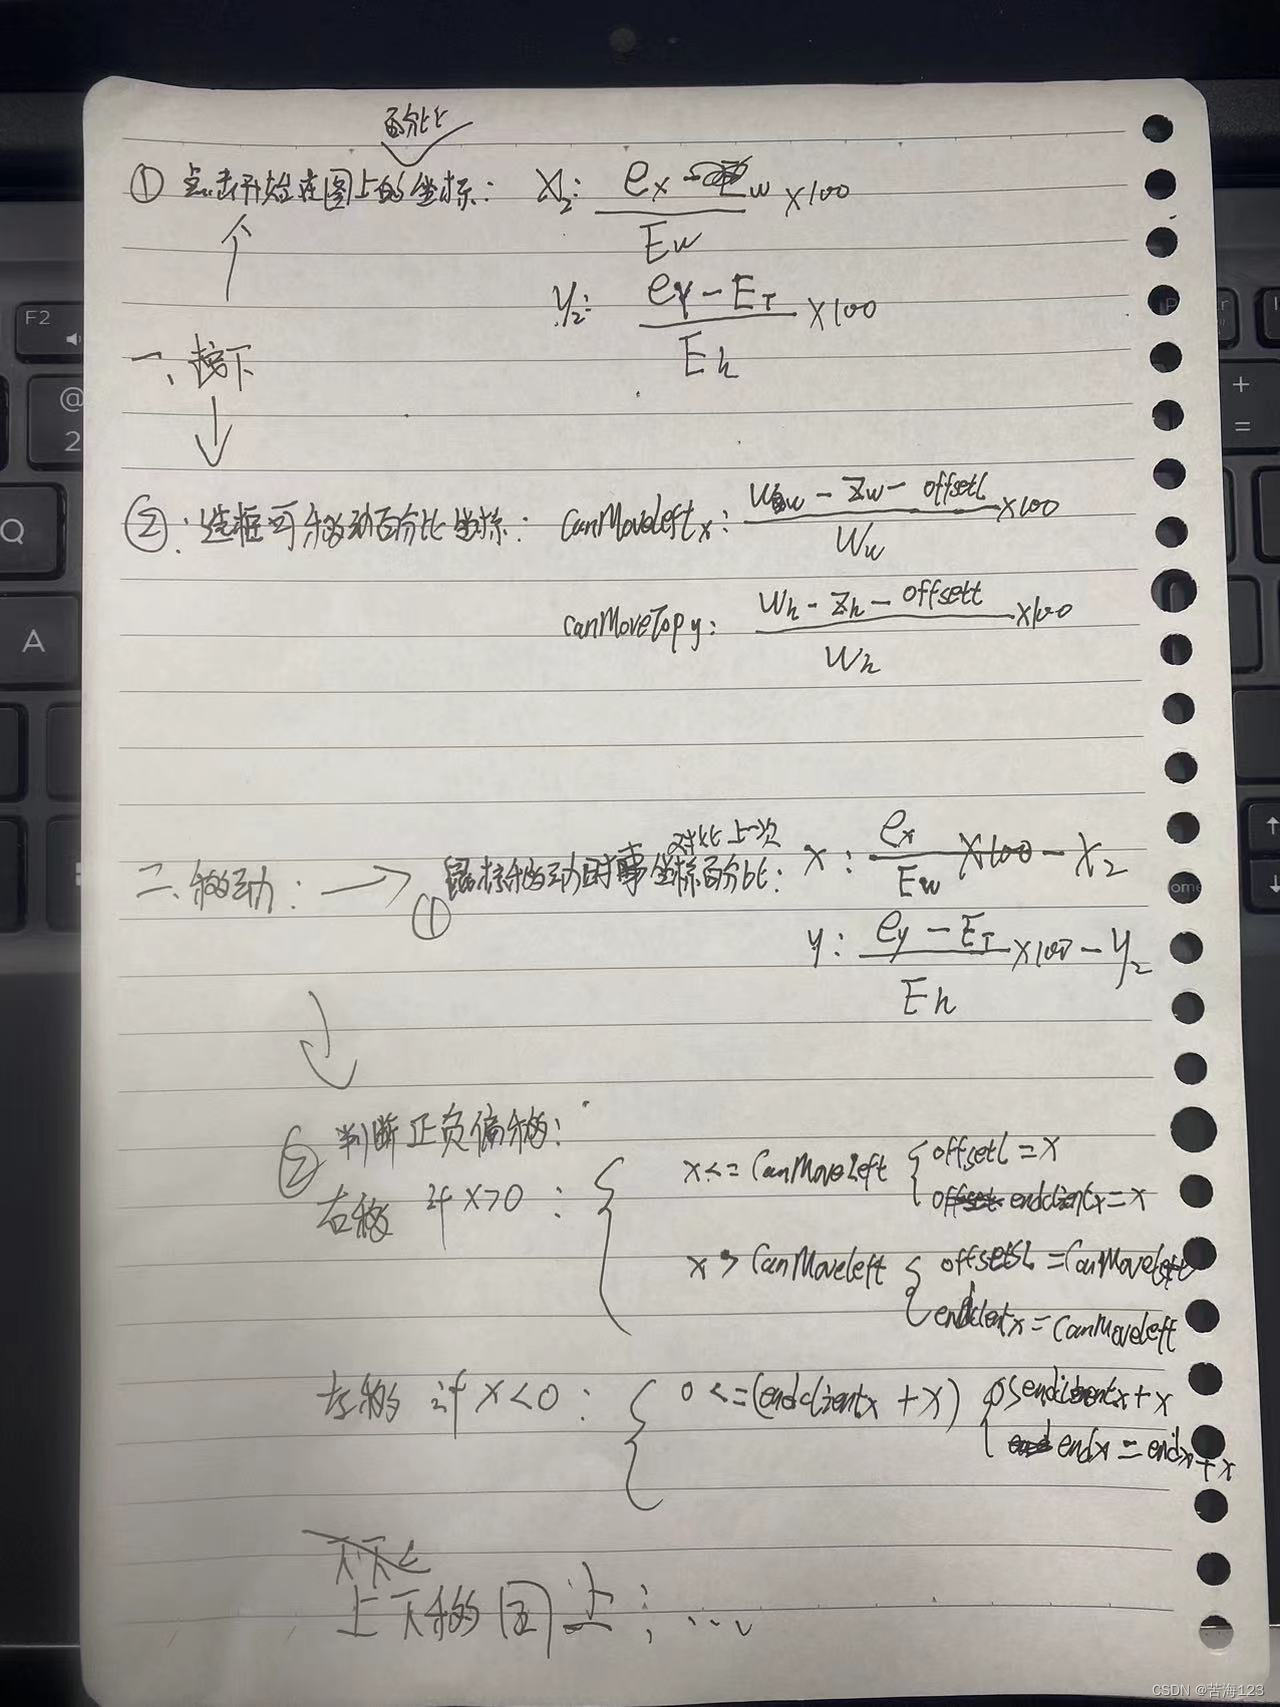 百分比
① 点击开始在图上的坐标: X₂: (eₓ / Ew) ×100
y₂: (ey - E_T) / Eh ×100
一、按下
②. 选框可移动百分比坐标: CanMoveLeft x: (Ww - Zw - offsetl) / Ww ×100
canMoveTop y: (Wh - Zh - offsett) / Wh ×100
对比上一次
二、移动: → ① 鼠标移动时坐标百分比: x: (eₓ / Ew) ×100 - X₂
y: (ey - E_T) / Eh ×100 - y₂
② 判断正负偏移:
右移 if x>0: { x <= CanMoveLeft { offsetl = x
endclientx = x
x > CanMoveleft { offsetl = CanMoveleft
endclientx = CanMoveleft
左移 if x<0: { 0 <= (endclientx + x) { endclientx + x
endx = endx + x
上下移同上: ...
F2
@
2
Q
A
+
=
CSDN @苦海123